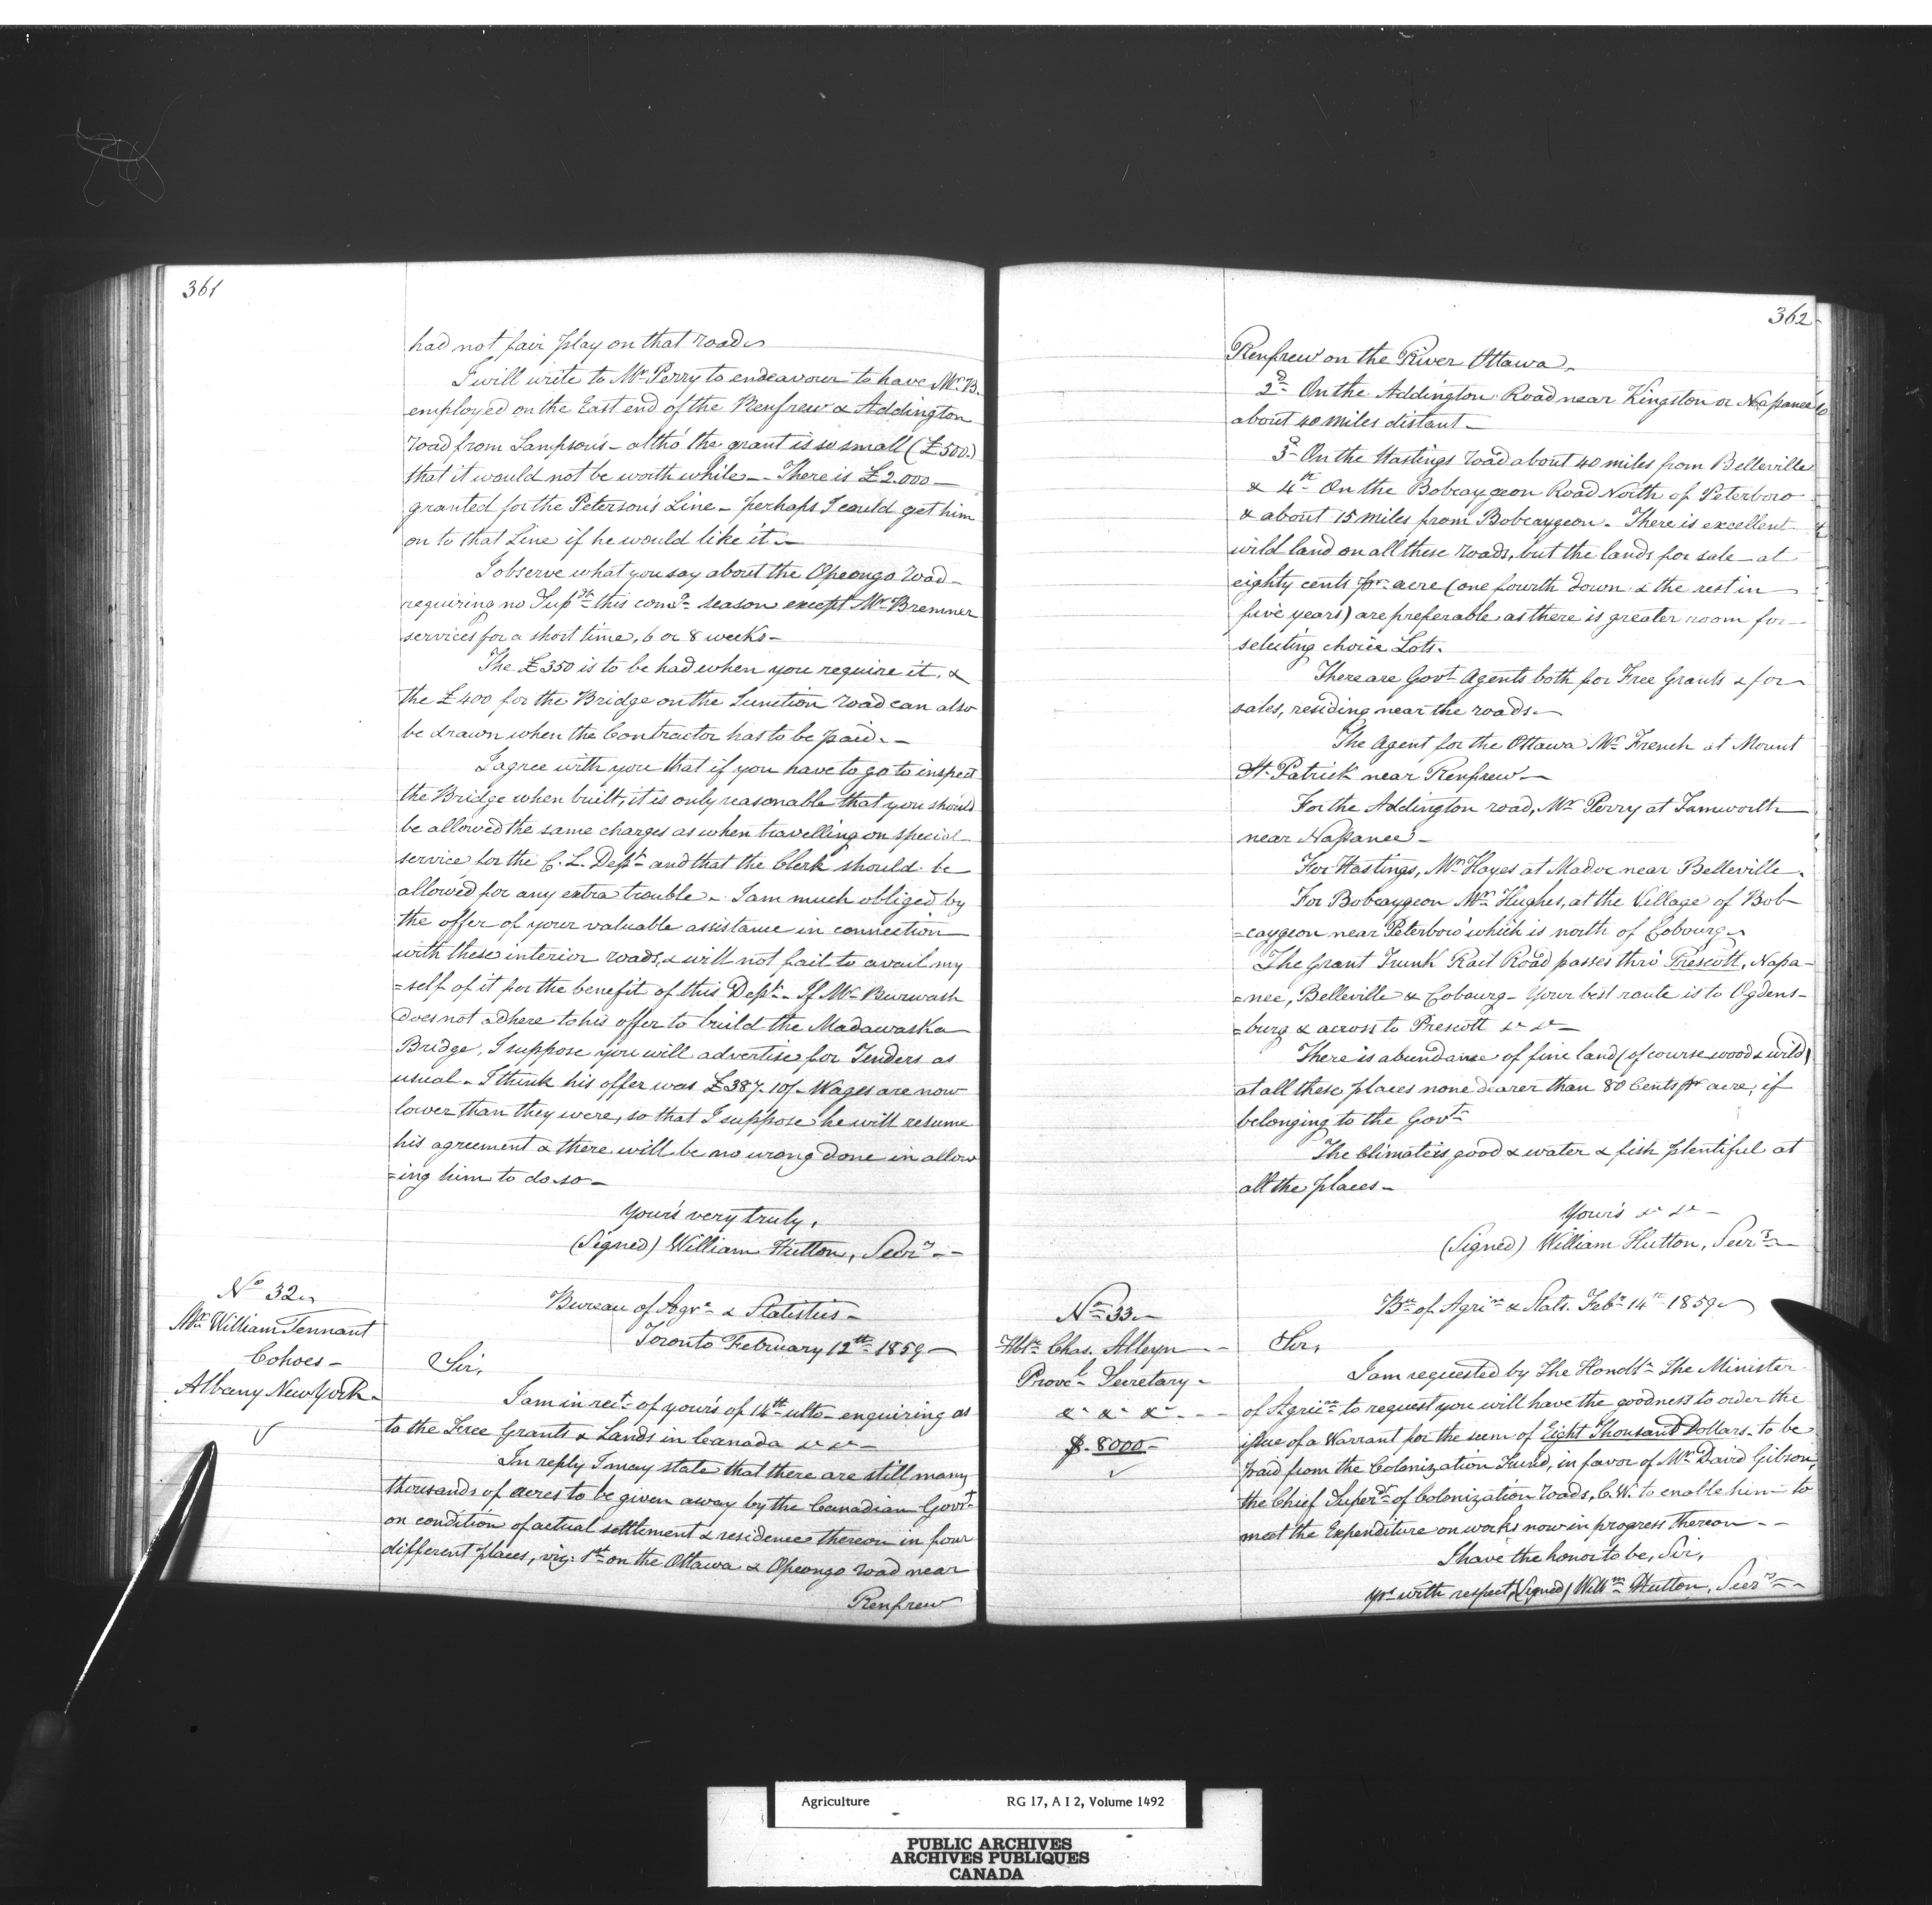 361
had not fair play on that road
I will write to Mr Perry to endeavour to have Mr B.
employed on the East end of the Renfrew & Addington
road from Sampson's - altho' the grant is so small (£500.)
that it would not be worth while - There is £2.000 -
granted for the Peterson's Line - perhaps I could get him
on to that Line if he would like it. -
I observe what you say about the Opeongo road -
requiring no Supdt this comg season except Mr Bremner
services for a short time, 6 or 8 weeks -
The £350 is to be had when you require it, &
the £400 for the Bridge on the Junction road can also
be drawn when the Contractor has to be paid. -
I agree with you that if you have to go to inspect
the Bridge when built, it is only reasonable that you should
be allowed the same charges as when travelling on special
service for the C. L. Dept and that the Clerk should be
allowed for any extra trouble - I am much obliged by
the offer of your valuable assistance in connection
with these interior roads, & will not fail to avail my
=self of it for the benefit of this Dept - If Mr Burwash
does not adhere to his offer to build the Madawaska
Bridge, I suppose you will advertise for Tenders as
usual - I think his offer was £387.10/- Wages are now
lower than they were, so that I suppose he will resume
his agreement & there will be no wrong done in allow
=ing him to do so -
Your's very truly,
(Signed) William Hutton, Secry - -
No 32
Mr William Tennant
Cohoes -
Albany New York -
Bureau of Agre & Statistics -
Toronto February 12th 1859 -
Sir,
I am in rect of your's of 14th ulto - enquiring as
to the Free Grants & Lands in Canada &c &c -
In reply I may state that there are still many
thousands of acres to be given away by the Canadian Govt
on condition of actual settlement & residence thereon in four
different places, viz: 1st on the Ottawa & Opeongo road near
Renfrew
362
Renfrew on the River Ottawa -
2d On the Addington Road near Kingston or Napanee &
about 40 miles distant -
3d On the Hastings road about 40 miles from Belleville
& 4th On the Bobcaygeon Road North of Peterboro
& about 15 miles from Bobcaygeon - There is excellent
wild land on all these roads, but the lands for sale at
eighty cents pr acre (one fourth down & the rest in
five years) are preferable as there is greater room for
selecting choice Lots.
There are Govt Agents both for Free Grants & for
sales, residing near the roads -
The Agent for the Ottawa Mr French at Mount
St. Patrick near Renfrew -
For the Addington road, Mr Perry at Tamworth
near Napanee -
For Hastings, Mr Hayes at Madoc near Belleville.
For Bobcaygeon Mr Hughes, at the Village of Bob-
=caygeon near Peterboro' which is north of Cobourg
The Grant Trunk Rail Road passes thro' Prescott, Napa-
=nee, Belleville & Cobourg - Your best route is to Ogdens-
=burg & across to Prescott &c &c -
There is abundance of fine land (of course wood & wild)
at all these places none dearer than 80 Cents pr acre, if
belonging to the Govt
The Climate is good & water & fish plentiful at
all the places -
Your's &c &c -
(Signed) William Hutton, Secry -
No 33
Hble Chas. Alleyn - -
Provl Secretary -
&c &c &c - - -
$ 8000 -
Bu of Agrire & Stats. Feby 14th 1859
Sir,
I am requested by The Honoble The Minister
of Agrire to request you will have the goodness to order the
issue of a Warrant for the sum of Eight Thousand Dollars - to be
paid from the Colonization Fund, in favor of Mr David Gibson,
the Chief Superdt of Colonization roads, C.W. to enable him to
meet the Expenditure on works now in progress thereon - -
I have the honor to be, Sir,
Yrs with respect, (Signed) Willm Hutton, Secry - -
Agriculture RG 17, A I 2, Volume 1492
PUBLIC ARCHIVES
ARCHIVES PUBLIQUES
CANADA